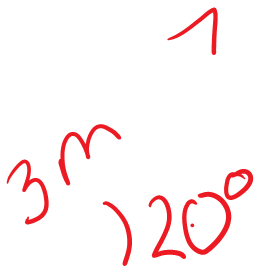 1
3 m
120°